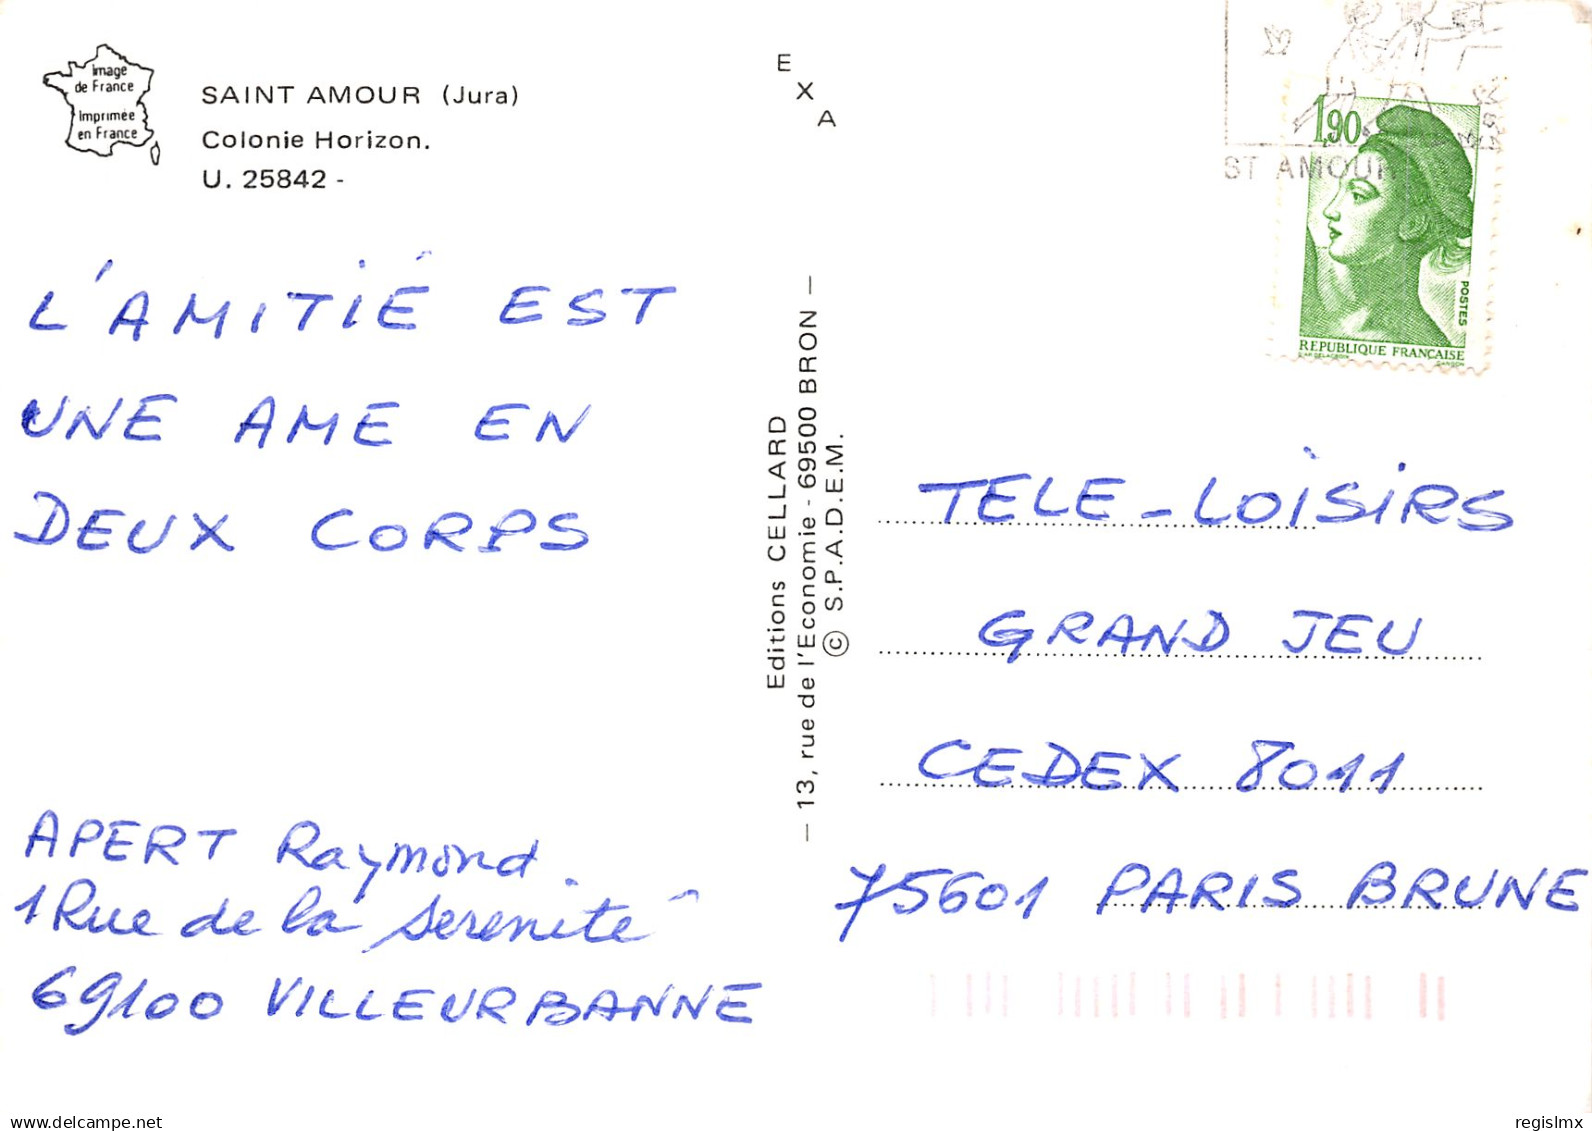 Image
de France
Imprimée
en France
SAINT AMOUR (Jura)
Colonie Horizon.
U. 25842 -
L'AMITIÉ EST
UNE AME EN
DEUX CORPS
APERT Raymond.
1 Rue de la serenité
69100 VILLEURBANNE
E
X
A
Editions CELLARD
— 13, rue de l'Economie - 69500 BRON —
© S.P.A.D.E.M.
ST AMOUR
1,90
POSTES
REPUBLIQUE FRANÇAISE
D'AP. DELACROIX
GANDON
TELE-LOISIRS
GRAND JEU
CEDEX 8011
75601 PARIS BRUNE
delcampe.net
regislmx